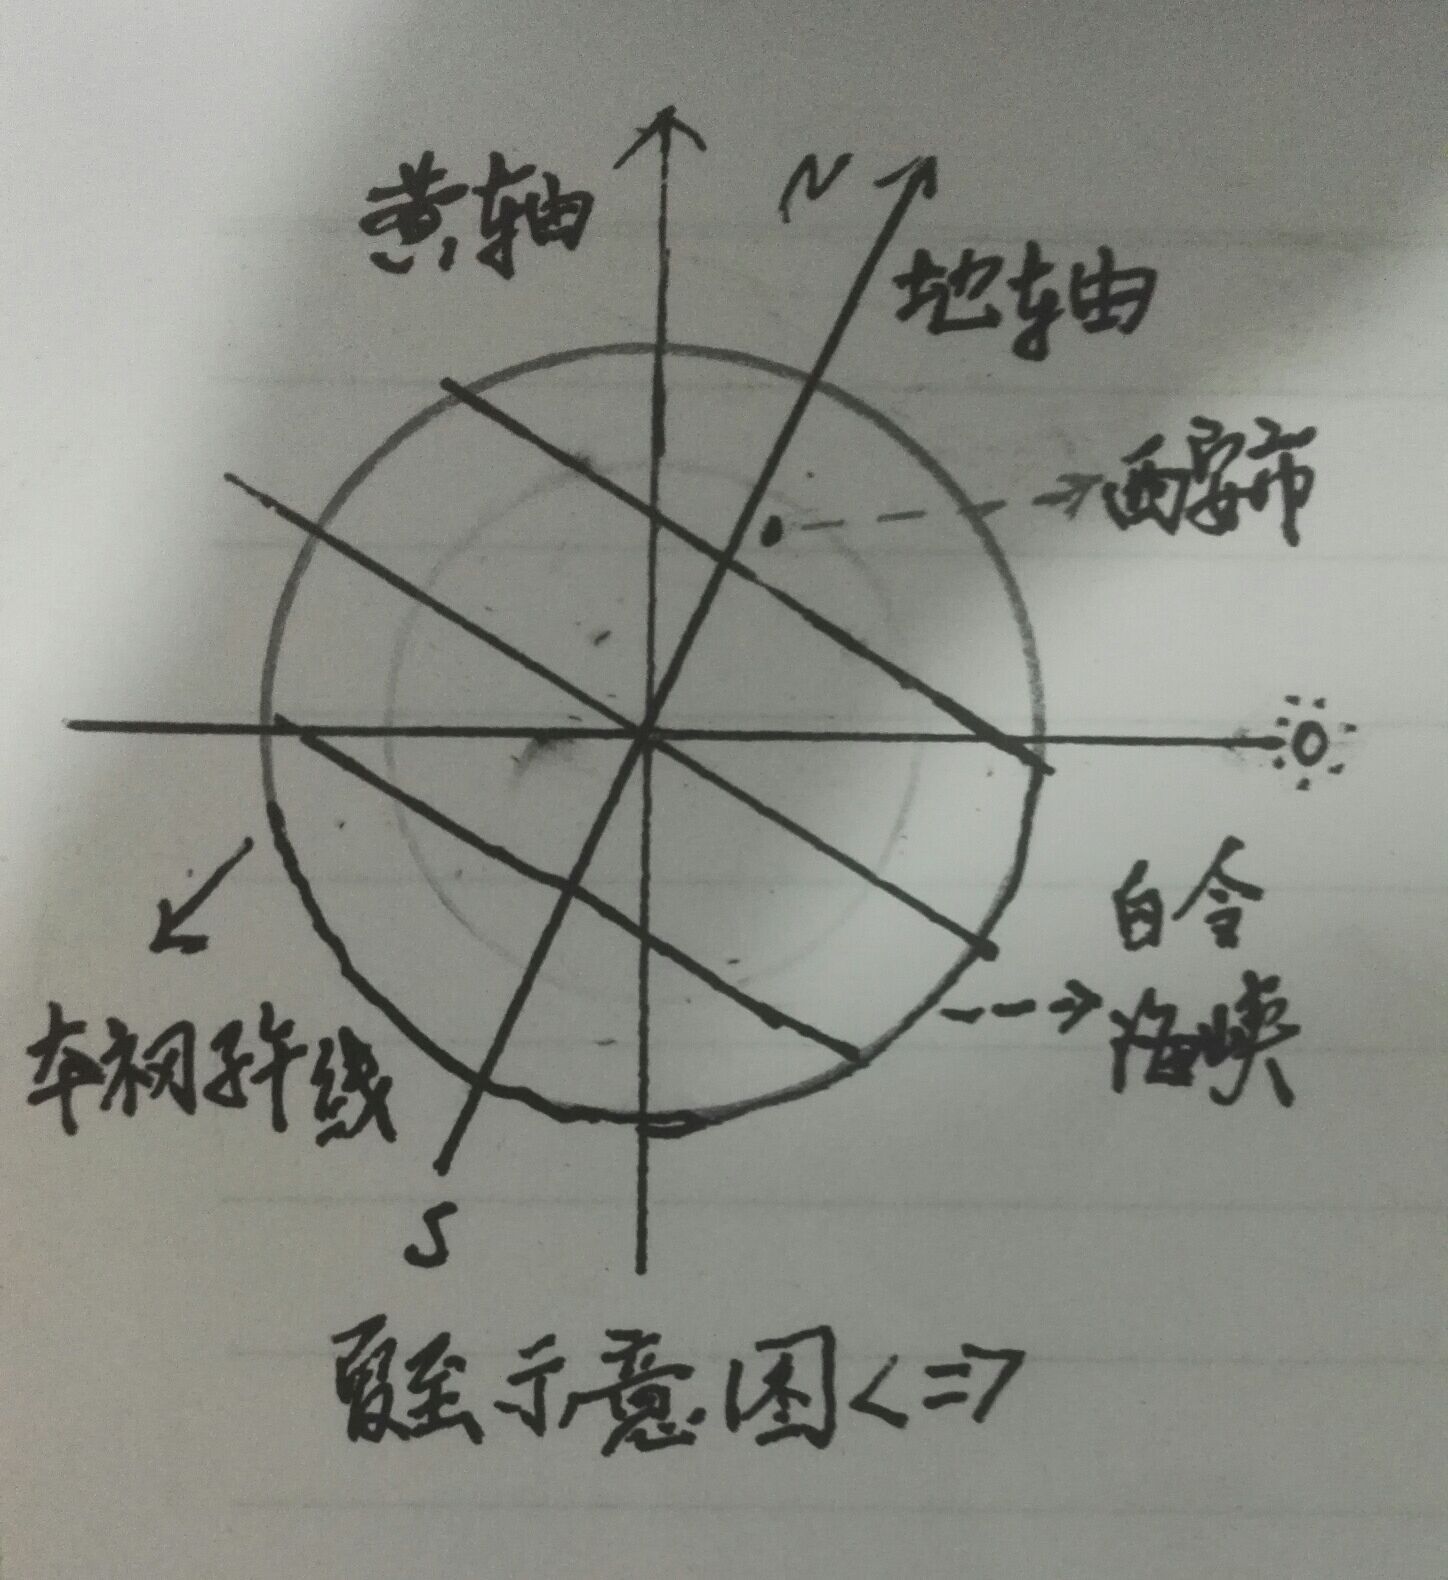 黄轴
N
地轴
西安市
白令
海峡
本初子午线
S
夏至示意图<=>